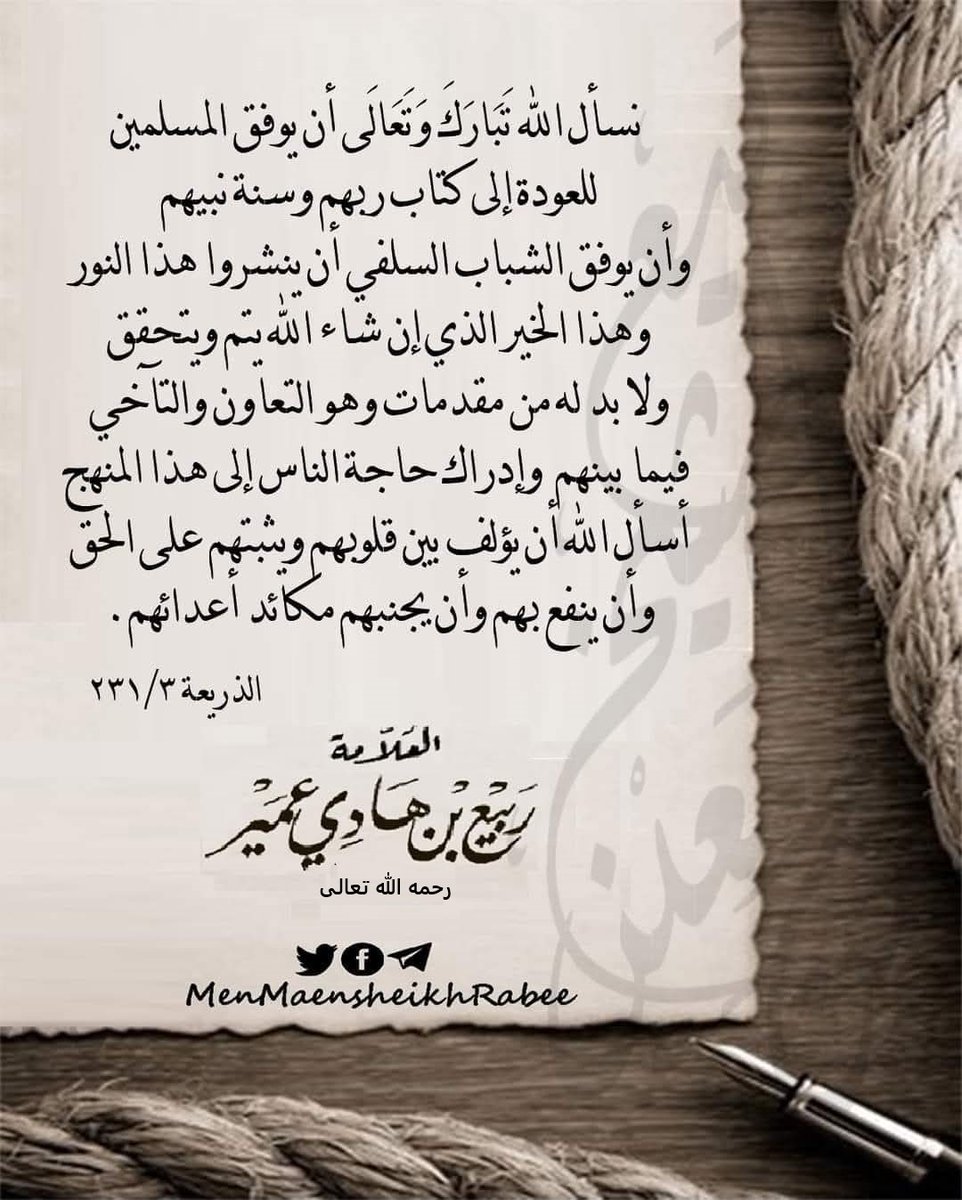 نسأل الله تَبَارَكَ وَتَعَالَى أن يوفق المسلمين
للعودة إلى كتاب ربهم وسنة نبيهم
وأن يوفق الشباب السلفي أن ينشروا هذا النور
وهذا الخير الذي إن شاء الله يتم ويتحقق
ولا بد له من مقدمات وهو التعاون والتآخي
فيما بينهم وإدراك حاجة الناس إلى هذا المنهج
أسأل الله أن يؤلف بين قلوبهم ويثبتهم على الحق
وأن ينفع بهم وأن يجنبهم مكائد أعدائهم .
الذريعة ٢٣١/٣
العَلاّمة
رَبِيْع بْن هَادِي عُمَيْر
رحمه الله تعالى
MenMaensheikhRabee